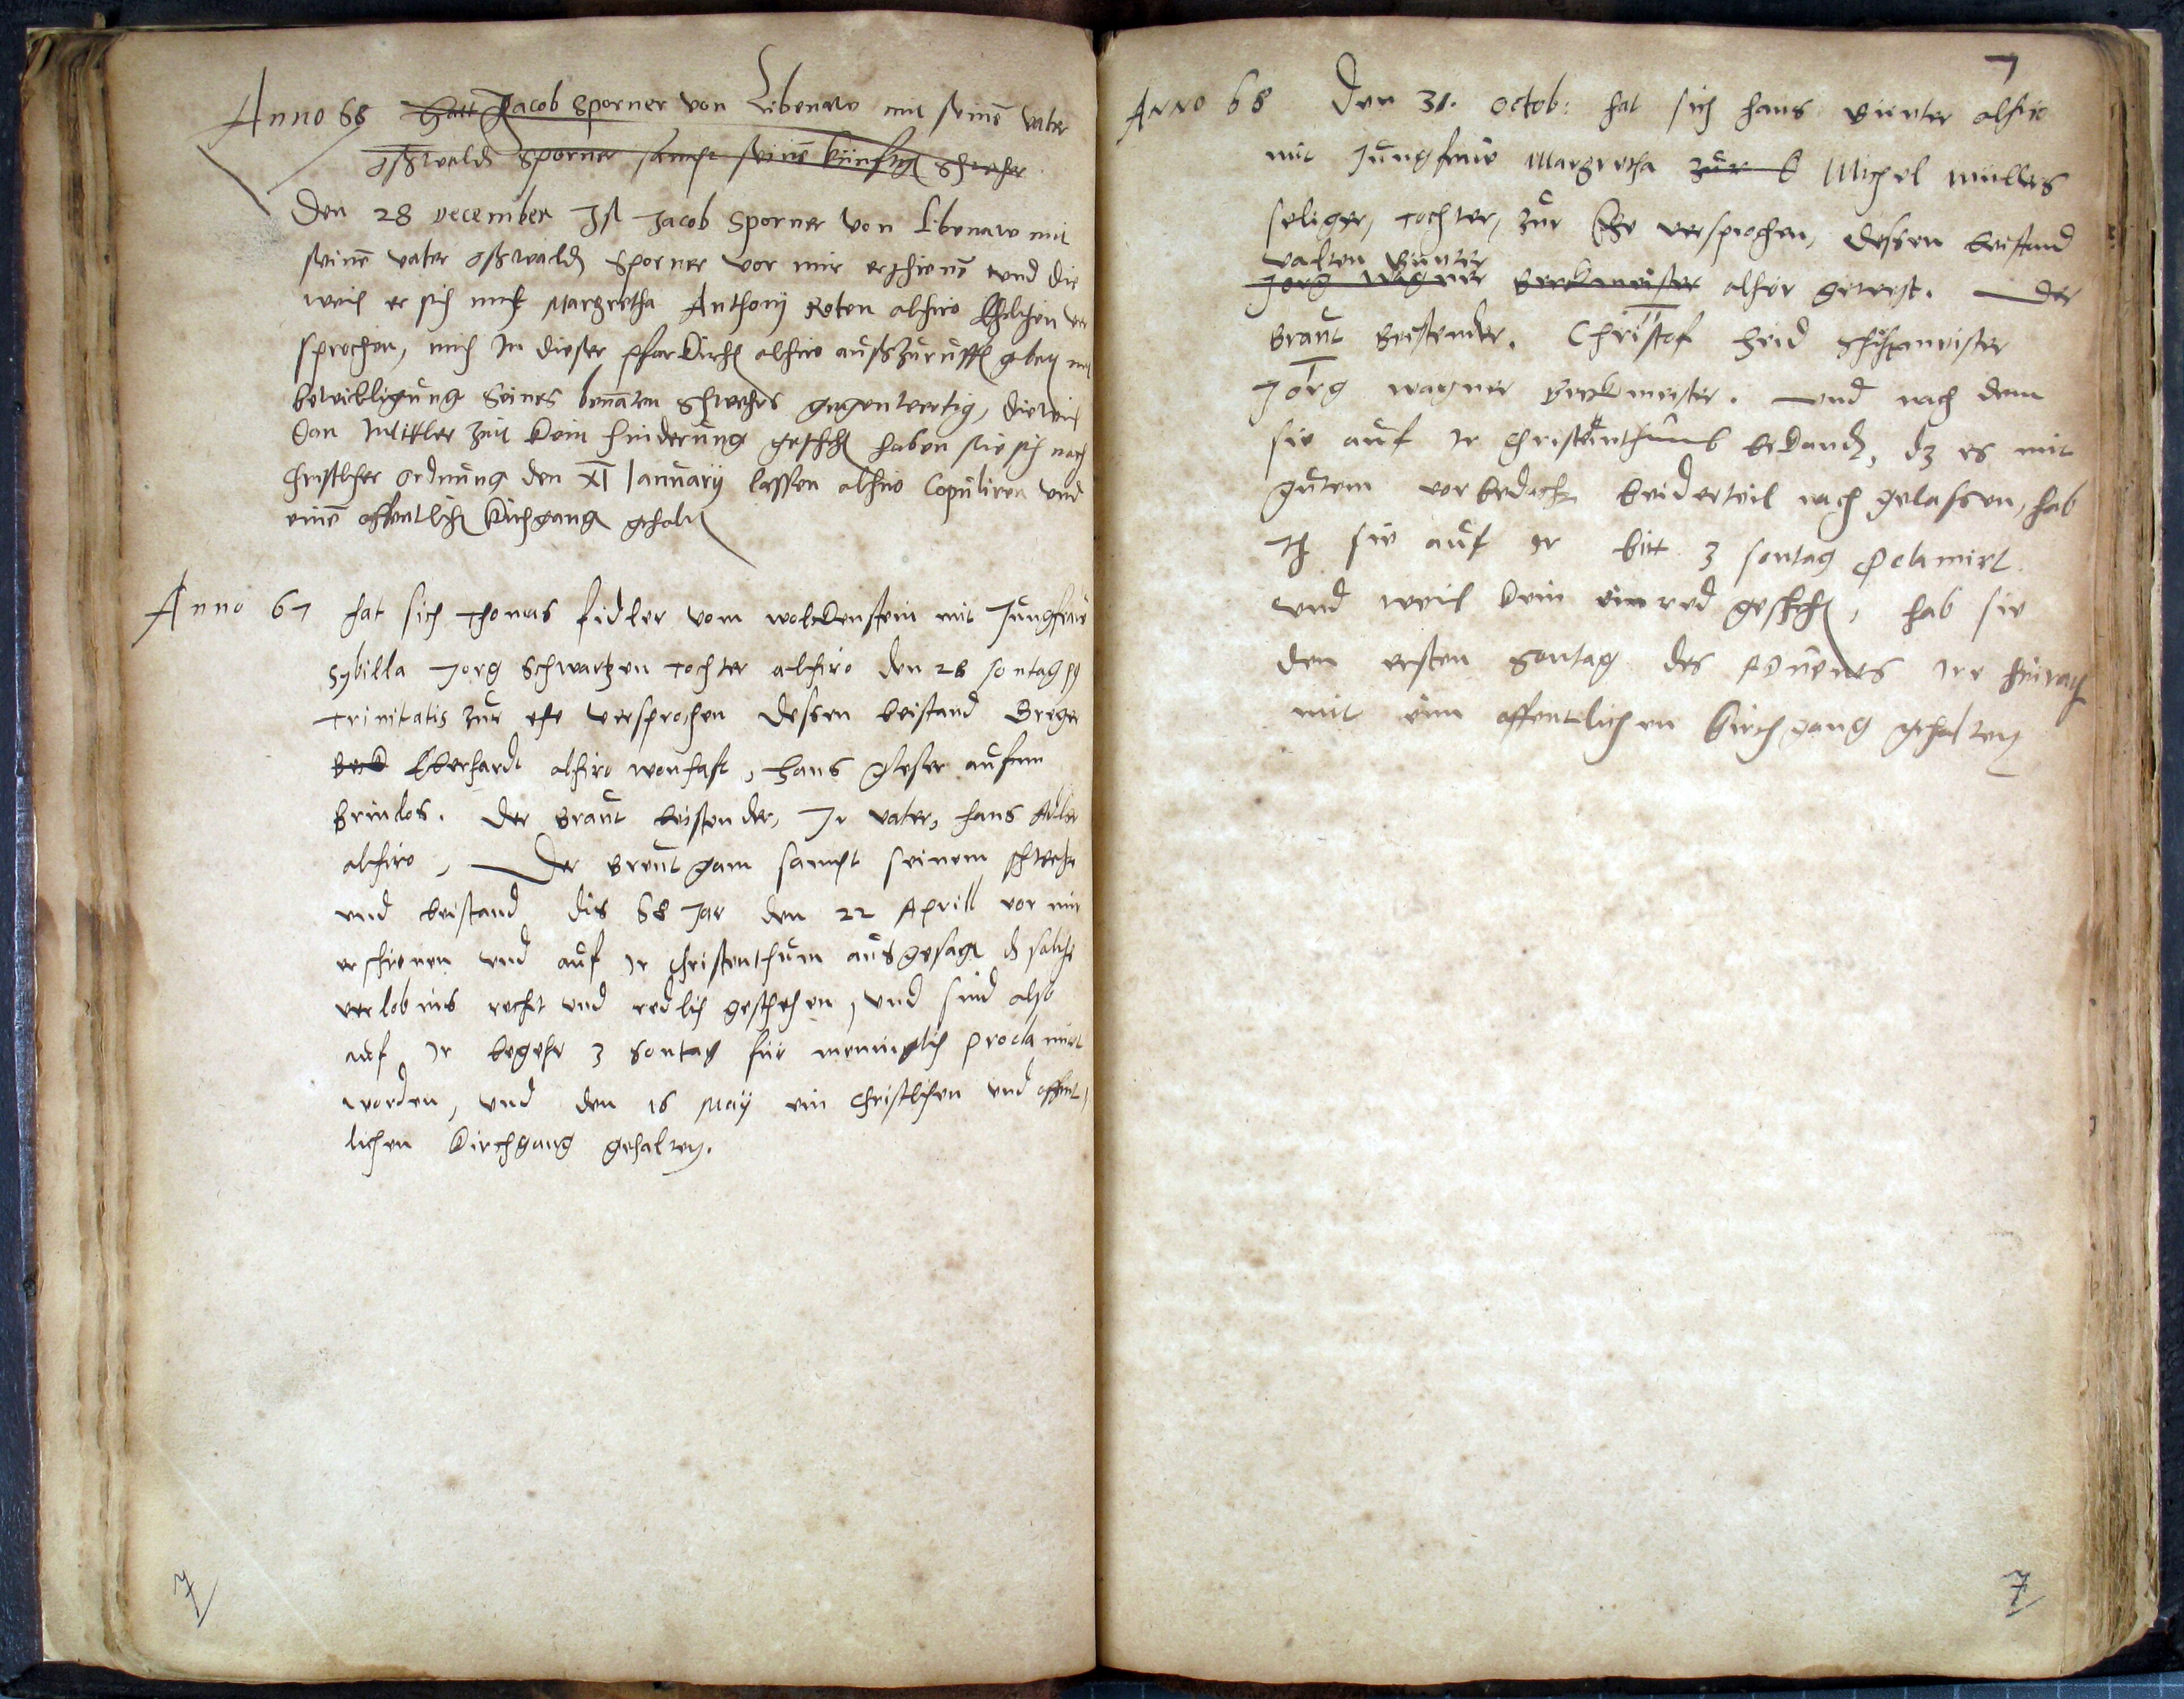 Anno 68 Hatt Jacob Sporner von Libenaw mit seinē vater
Oßwaldt Sporner sampt seinē künfftigē Schweher
Den 28 December Ist Jacob Sporner von Libenaw mit
seinē vater Oßwaldt Sporner vor mir erschienē und die
weil er sich mitt Margretha Anthonij Roten alhiro Ehlichen ver
sprochen, mich In dieser Pfarkirchē alhiro außzuruffē gbetē mit
bewilligung Seines benāten Schwehers gegenwertig, dieweil
dan Mitler zeit kein hinderung geschehē haben sie sich nach
christlicher ordnung den XI Januarij lassen alhiro Copuliren und
einē offentlichē Kirchgang gehaltē
Anno 67 hat sich Thomas fidler vom wolckenstein mit Jungfraw
Sybilla Jorg Schwartzen tochter alhiro den 28 sontag
Trinitatis zur ehe versprochen dessen beistand Greger
Beck Eberhardt alhiro wonhaft, Hans Gleser aufm
Brindlos. Der Braut beistender, Ir vater, Hans Adler
alhiro, Der Breutgam sampt seinem schweher
und beistand dis 68 Jar den 22 Aprill vor mir
erschienen und auf Ir christenthum ausgesagt d solche
verlobnis recht und redlich geschehen, und sind also
auf Ir begehr 3 Sontag für menniglich proclamirt
worden, und den 16 Maij ein christlichen und offent,
lichen Kirchgang gehalten.
7
7
Anno 68 Den 31. Octob: hat sich Hans Günter alhie
mit Jungfraw Margretha zur E Michel Müllers
seliger, tochter, zur Ehe versprochen, dessen beistand
valten Günter
Jorg Wagner Berckmeister alhier gewest. Der
Braut Beistender. Christof Heid Schichtmeister
Jorg wagner Berckmeister. und nach dem
sie auf Ir christenthumb bekandt, dz es mit
gutem vorbedacht beiderteil nach gelassen, hab
Ich sie auf Ir bitt 3 sontag pclamirt
und weil kein einred geschehē, hab sie
den ersten Sontag des Advents Ire heirath
mit eim offentlichen Kirchgang gehalten
7